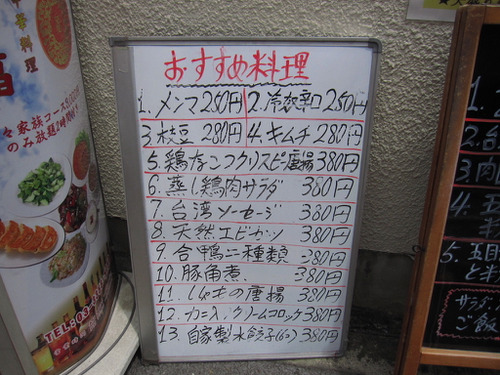 おすすめ料理
1. メンマ 250円 2. 冷奴辛口 250円
3. 枝豆 280円 4. キムチ 280円
5. 鶏なんこつクリスピー唐揚 380円
6. 蒸し鶏肉サラダ 380円
7. 台湾ソーセージ 380円
8. 天然エビカツ 380円
9. 合鴨二種類 380円
10. 豚角煮 380円
11. しゃモの唐揚 380円
12. カニ入クリームコロッケ 380円
13. 自家製水餃子(6コ) 380円
中華料理
家族コース
のみ放題2時間
TEL:03
サラダ
ご飯